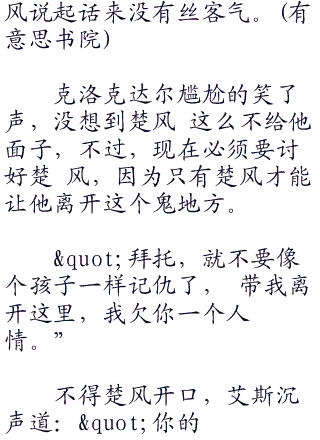 风说起话来没有丝客气。(有
意思书院)
克洛克达尔尴尬的笑了
声，没想到楚风 这么不给他
面子，不过，现在必须要讨
好楚 风，因为只有楚风才能
让他离开这个鬼地方。
&quot;拜托，就不要像
个孩子一样记仇了， 带我离
开这里，我欠你一个人
情。”
不得楚风开口，艾斯沉
声道：&quot;你的